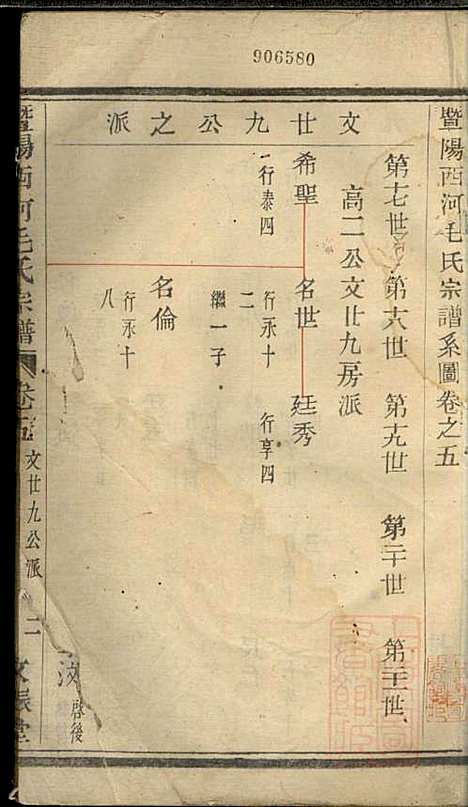 906580
暨陽西河毛氏宗譜系圖卷之五
第十七世 第十八世 第十九世 第二十世 第二十一世
高二公文廿九房派
文廿九公之派
希聖 名世 廷秀
一行泰四
行永十二
繼一子
行享四
名倫
行永十八
暨陽西河毛氏宗譜
卷之五
文廿九公派
二
啓後